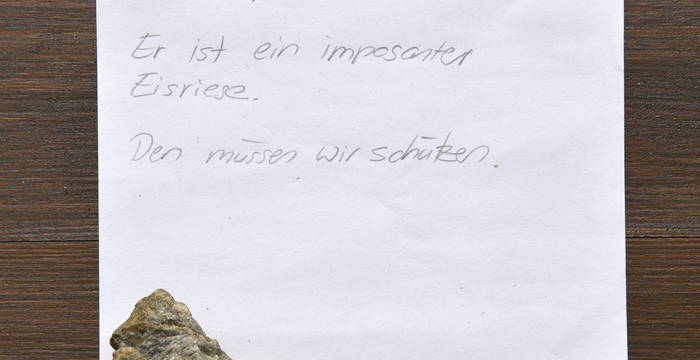 Er ist ein imposanter
Eisriese.
Den müssen wir schützen.